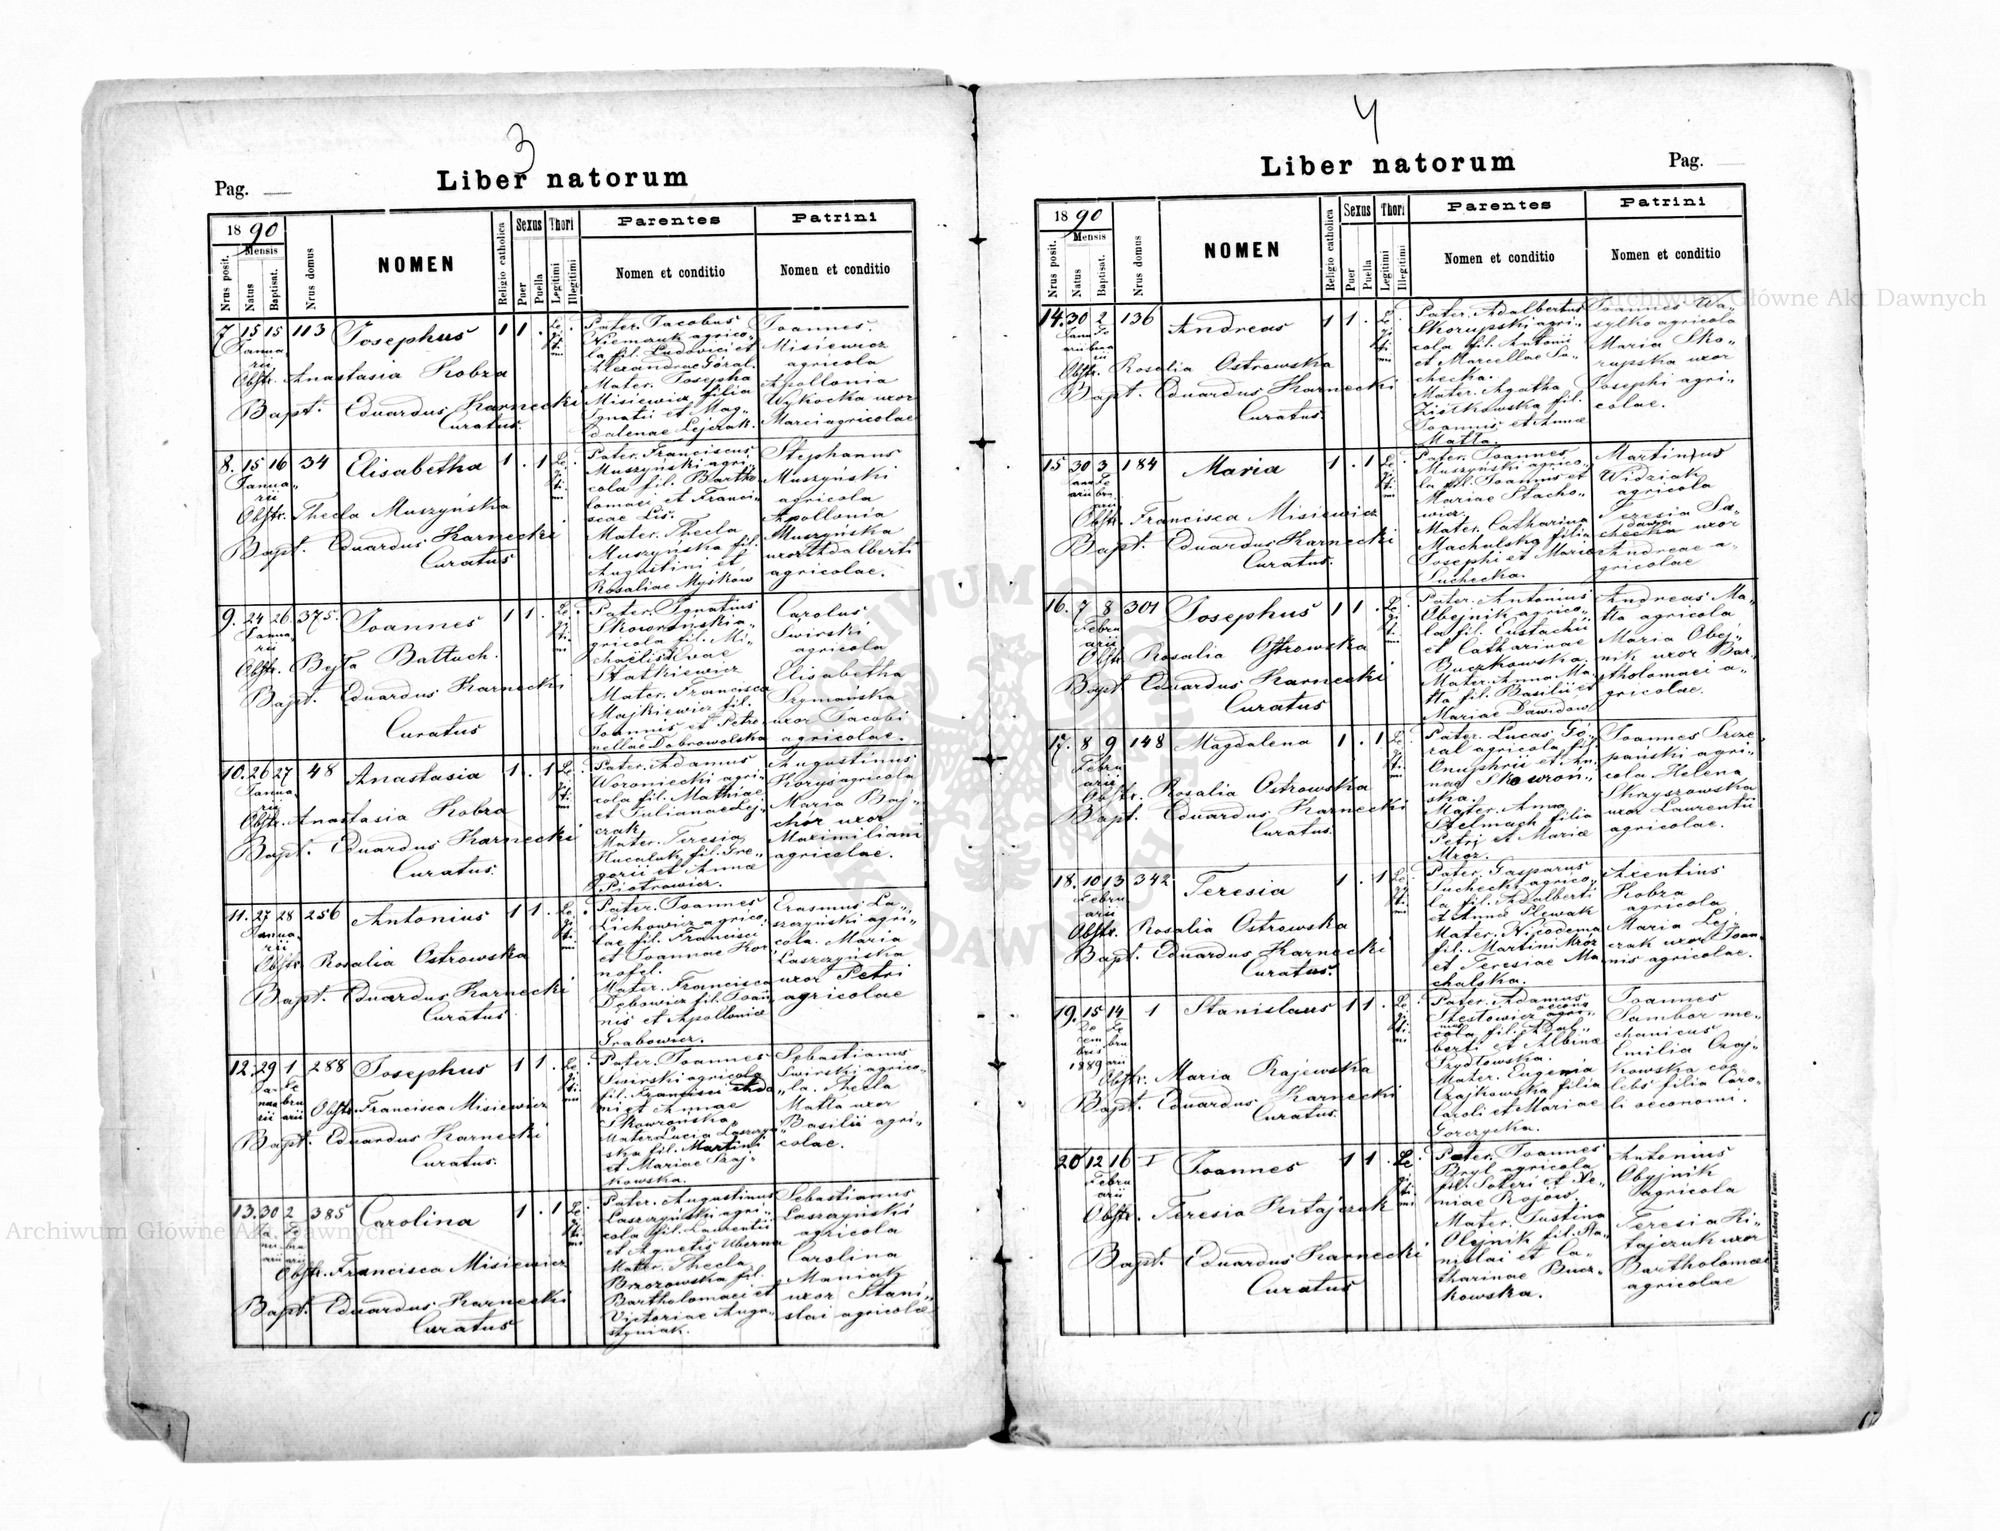 3
Pag.
Liber natorum
18 90
Mensis
Nrus posit.
Natus
Baptisat.
Nrus domus
NOMEN
Religio catholica
Sexus
Puer
Puella
Thori
Legitimi
Illegitimi
Parentes
Nomen et conditio
Patrini
Nomen et conditio
7 15 15 113 Josephus 1 1 .
Janua
rii
Obstr. Anastasia Kobza
Bapt. Eduardus Karnecki
Curatus.
Pater. Jacobus
Niemczuk agrico-
la fil. Ludovici et
Alexandrae Góral.
Mater. Josepha
Misiewicz filia
Ignatii et Mag-
dalenae Lejczak.
Joannes.
Misiewicz
agricola
Apollonia
Wykocka uxor
Marci agricolae
8. 15 16 34 Elisabetha 1 . 1
Janua-
rii
Obstr. Thecla Muszyńska
Bapt. Eduardus Karnecki
Curatus
Pater. Franciscus
Muszyński agri-
cola fil. Bartho
lomaei et Franci-
scae Lis.
Mater. Thecla
Muszyńska fil.
Augustini et
Rosaliae Myśków
Stephanus
Muszyński
agricola
Apollonia
Muszyńska
uxor Adalberti
agricolae.
9. 24 26 375. Joannes 1 1 .
Janua
rii
Obstr. Bejła Balluch.
Bapt. Eduardus Karnecki
Curatus
Pater. Ignatius
Skowroński a-
gricola fil. Mi-
chaëlis Evae
Statkiewicz
Mater. Francisca
Majkiewicz fil.
Joannis et Petro
nellae Dobrowolska
Carolus
Świrski
agricola
Elisabetha
Szymańska
uxor Jacobi
agricolae.
10. 26 27 48 Anastasia 1 . 1
Janua-
rii
Obstr. Anastasia Kobza
Bapt. Eduardus Karnecki
Curatus.
Pater. Adamus
Woroniecki agri-
cola fil. Mathiae
et Julianae Lej-
czak
Mater. Teresia
Hucaluk fil. Gre-
gorii et Annae
Piotrowicz.
Augustinus
Korys agricola
Maria Baj-
chór uxor
Maximiliani
agricolae.
11. 27 28 256 Antonius 1 1 .
Janua-
rii
Obstr. Rosalia Ostrowska
Bapt. Eduardus Karnecki
Curatus
Pater. Joannes
Lichowicz agrico-
lae fil. Francisci
et Joannae Kor
nofel.
Mater. Francisca
Dębowicz fil. Joan-
nis et Apolloniae
Grabowicz.
Erasmus La-
szczyński agri-
cola. Maria
Laszczyńska
uxor Petri
agricolae
12. 29 1 288 Josephus 1 1 .
Obstr. Francisca Misiewicz
Bapt. Eduardus Karnecki
Curatus.
Pater. Joannes
Świrski agricola
fil. Francisci
et Annae
Skowrońska
Mater Lucia Laszczyń-
ska fil. Martini
et Mariae Szaj-
kowska.
Sebastianus
Świrski agrico-
la. Thecla
Matla uxor
Basilii agri-
colae.
13. 30 2 385 Carolina 1 . 1
Obstr. Francisca Misiewicz
Bapt. Eduardus Karnecki
Curatus
Pater. Augustinus
Laszczyński agri-
cola fil. Laurentii
et Agnetis Uberna
Mater. Thecla
Brzozowska fil.
Bartholomaei et
Victoriae Augu-
styniak.
Sebastianus
Laszczyński
agricola
Carolina
Maniak
uxor Stani-
slai agricolae
4
Liber natorum
Pag.
18 90
Mensis
Nrus posit.
Natus
Baptisat.
Nrus domus
NOMEN
Religio catholica
Sexus
Puer
Puella
Thori
Legitimi
Illegitimi
Parentes
Nomen et conditio
Patrini
Nomen et conditio
14. 30 2 136 Andreas 1 1 .
Obstr. Rosalia Ostrowska
Bapt. Eduardus Karnecki
Curatus.
Pater. Adalbertus
Skorupski agri-
cola fil. Antonii
et Marcellae Su-
checka.
Mater. Agatha
Ziółkowska fil.
Joannis et Annae
Matla.
Joannes Wa-
sylko agricola
Maria Sko-
rupska uxor
Josephi agri-
colae.
15 30 3 184 Maria 1 . 1
Obstr. Francisca Misiewicz
Bapt. Eduardus Karnecki
Curatus.
Pater. Joannes
Muszyński agrico-
la fil. Joannis et
Mariae Stacho-
wicz.
Mater. Catharina
Machulska filia
Josephi et Mariae
Suchecka.
Martinus
Widziak
agricola
Teresia Su-
checka uxor
Andreae a-
gricolae
16. 7 8 301 Josephus 1 1 .
Febru
arii
Obstr. Rosalia Ostrowska
Bapt. Eduardus Karnecki
Curatus
Pater. Antonius
Obejnik agrico-
la fil. Eustachii
et Catharinae
Buczkowska.
Mater. Anna Ma-
tla fil. Basilii et
Mariae Dawidow
Andreas Ma-
tla agricola
Maria Obej-
nik uxor Bar-
tholomaei a-
gricolae.
17. 8 9 148 Magdalena 1 . 1
Febru
arii
Obstr. Rosalia Ostrowska
Bapt. Eduardus Karnecki
Curatus.
Pater. Lucas Gó-
ral agricola fil.
Onuphrii et An-
nae Skowroń-
ska.
Mater. Anna
Stelmach filia
Petri et Mariae
Mroz.
Joannes Szcze
pański agri-
cola Helena
Skrzyszowska
uxor Laurentii
agricolae.
18. 10 13 342 Teresia 1 . 1
Febru
arii
Obstr. Rosalia Ostrowska
Bapt. Eduardus Karnecki
Curatus.
Pater. Gasparus
Suchecki agrico-
la fil. Adalberti
et Annae Plewak
Mater. Nicodema
fil. Martini Mroz
et Teresiae Ma
chalska.
Axentius
Kobza
agricola
Maria Lej-
czak uxor Joan
nis agricolae.
19. 15 14 1 Stanislaus 1 1 .
De
cem
bris
1889
Obstr. Maria Rajewska
Bapt. Eduardus Karnecki
Curatus.
Pater. Adamus
Szestowicz
cola fil. Adal-
berti et Albinae
Frydlowska.
Mater. Eugenia
Czajkowska filia
Caroli et Mariae
Gorczycka.
Joannes
Sambor me-
chanicus
Emilia Czaj-
kowska coe-
lebs filia Caro-
li oeconomi.
20 12 16 I Joannes 1 1 .
Febru
arii
Obstr. Teresia Kitajczuk
Bapt. Eduardus Karnecki
Curatus
Pater. Joannes
Bryl agricola
fil. Soteri et Xe-
niae Rojów.
Mater. Justina
Olejnik fil. Sta-
nislai et Ca-
tharinae Bucz-
kowska.
Antonius
Obyjnik
agricola
Teresia Ki-
tajczuk uxor
Bartholomaei
agricolae
Nakładem Drukarni Ludowej we Lwowie.
Archiwum Główne Akt Dawnych
Archiwum Główne Akt Dawnych
ARCHIWUM GŁÓWNE AKT DAWNYCH